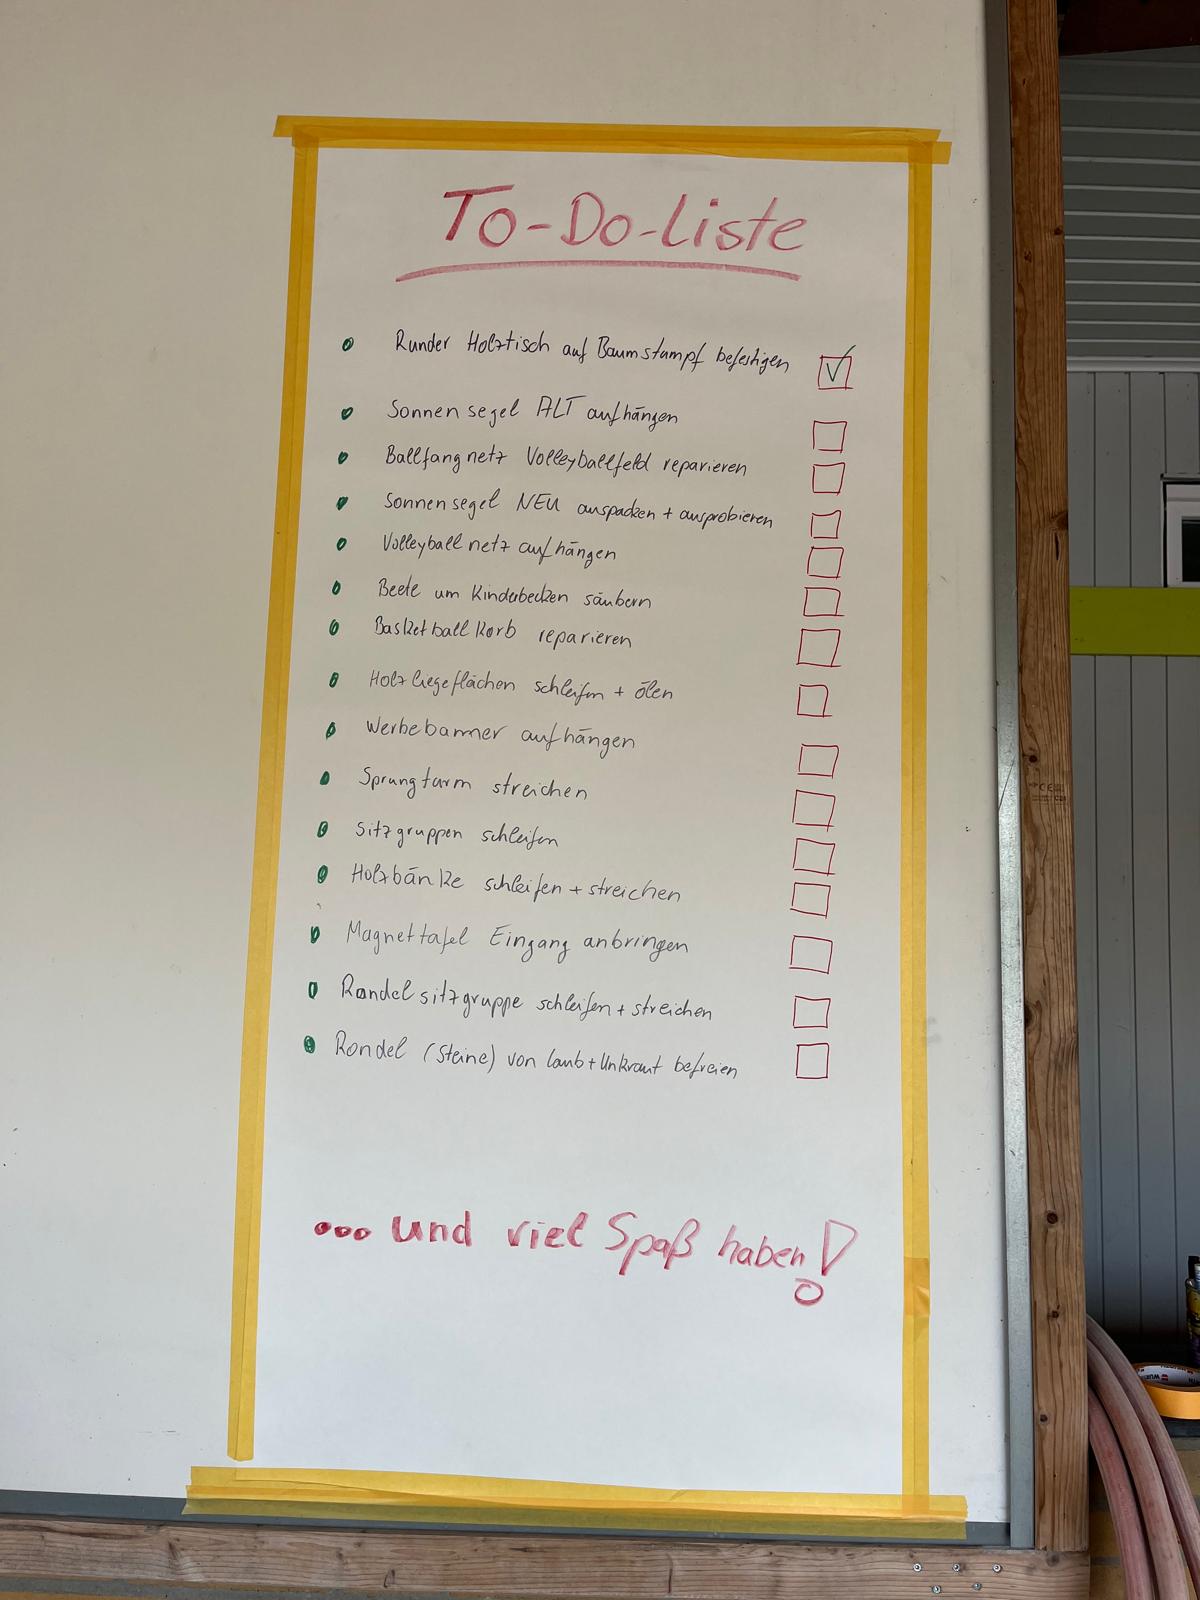 To-Do-Liste
Runder Holztisch auf Baumstumpf befestigen
Sonnensegel ALT aufhängen
Ballfangnetz Volleyballfeld reparieren
Sonnensegel NEU auspacken + ausprobieren
Volleyballnetz aufhängen
Beete um Kinderbecken säubern
Basketballkorb reparieren
Holzliegeflächen schleifen + ölen
Werbebanner aufhängen
Sprungturm streichen
Sitzgruppen schleifen
Holzbänke schleifen + streichen
Magnettafel Eingang anbringen
Rondel sitzgruppe schleifen + streichen
Rondel (Steine) von Laub + Unkraut befreien
... und viel Spaß haben!